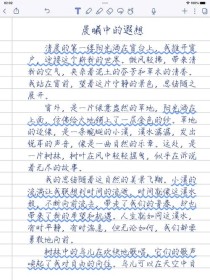 晨曦中的遐想
清晨的第一缕阳光洒在窗台上，我推开窗
户，迎接这个崭新的世界。微风轻拂，带来清
新的空气，夹杂着泥土的芬芳和草木的清香。
我站在窗前，望着这片宁静的景色，思绪随之
展开。
窗外，是一片绿意盎然的草地。阳光洒在
上面，仿佛给大地铺上了一层金色的纱。草地
的边缘，是一条蜿蜒的小溪，溪水潺潺，发出
悦耳的声音，像是一曲自然的乐章。这处，是
一片树林，树叶在风中轻轻摇曳，似乎在诉说
着无尽的故事。
我的思绪随着这自然的美景飞翔。小溪的
流淌让我联想到时间的流逝，时间就像这溪水
般，不断向前流去，带走了我们的青春，却也
带来了新的希望和机遇。人生就如同这溪水，
有时平静，有时湍急，但无论如何，我们都要
勇敢地向前。
树林中的鸟儿在欢快地歌唱，它们的歌声
唤起了我对自由的向往。鸟儿可以在天空中自